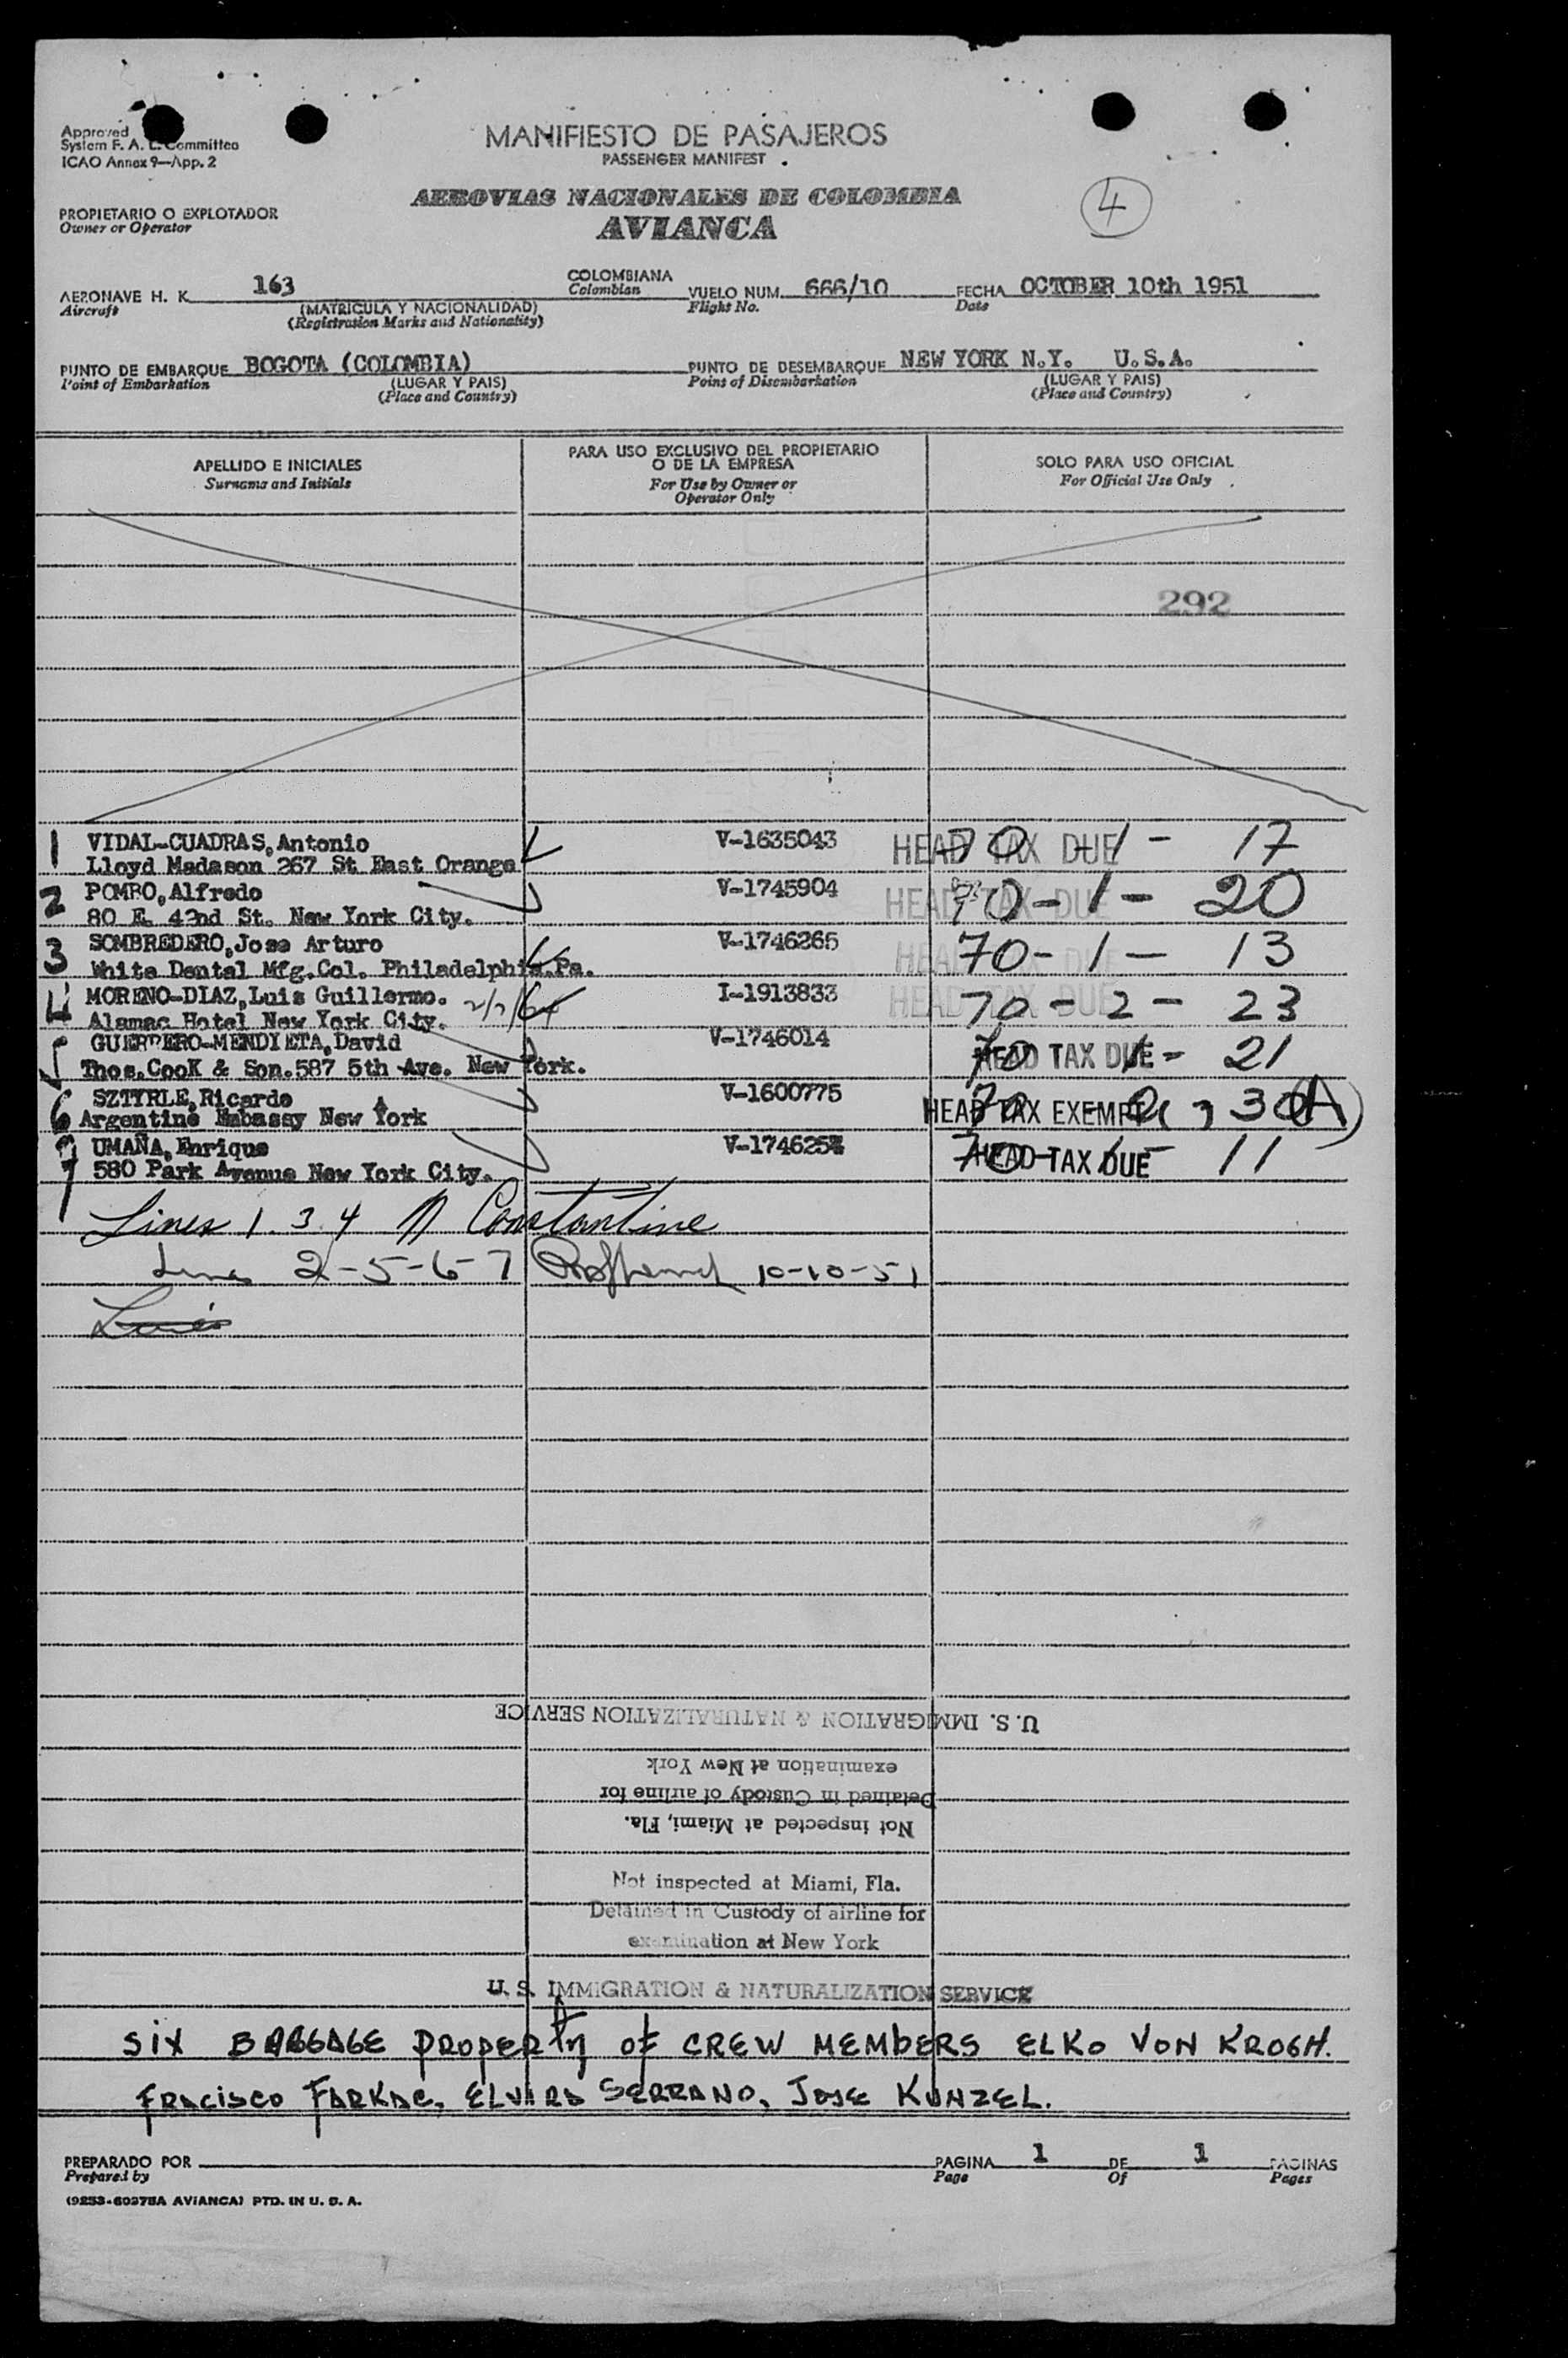 Approved
System F. A. L. Committee
ICAO Annex 9—App. 2
MANIFIESTO DE PASAJEROS
PASSENGER MANIFEST
AEROVIAS NACIONALES DE COLOMBIA
AVIANCA
4
PROPIETARIO O EXPLOTADOR
Owner or Operator
AERONAVE H. K. 163 COLOMBIANA VUELO NUM. 666/10 FECHA OCTOBER 10th 1951
Aircraft (MATRICULA Y NACIONALIDAD) Colombian Flight No. Date
(Registration Marks and Nationality)
PUNTO DE EMBARQUE BOGOTA (COLOMBIA) PUNTO DE DESEMBARQUE NEW YORK N.Y. U.S.A.
Point of Embarkation (LUGAR Y PAIS) Point of Disembarkation (LUGAR Y PAIS)
(Place and Country) (Place and Country)
APELLIDO E INICIALES
Surname and Initials
PARA USO EXCLUSIVO DEL PROPIETARIO
O DE LA EMPRESA
For Use by Owner or
Operator Only
SOLO PARA USO OFICIAL
For Official Use Only
292
1 VIDAL-CUADRAS, Antonio V-1635043 HEAD TAX DUE 70-1-17
Lloyd Madason 267 St East Orange
2 POMBO, Alfredo V-1745904 HEAD TAX DUE 70-1-20
80 E. 42nd St. New York City.
3 SOMBREDERO, Jose Arturo V-1746265 HEAD TAX DUE 70-1-13
White Dental Mfg. Col. Philadelphia. Pa.
4 MORENO-DIAZ, Luis Guillermo. I-1913833 HEAD TAX DUE 70-2-23
Alamac Hotel New York City.
5 GUERRERO-MENDIETA, David V-1746014 HEAD TAX DUE 70-1-21
Thos. CooK & Son. 587 5th Ave. New York.
6 SZTYRLE, Ricardo V-1600775 HEAD TAX EXEMPT
Argentine Embassy New York
7 UMAÑA, Enrique HEAD TAX DUE 70-1-11
580 Park Avenue New York City.
Lines 1. 3. 4 N Constantine
Lines 2-5-6-7 10-10-51
U. S. IMMIGRATION & NATURALIZATION SERVICE
examination at New York
Detained in Custody of airline for
Not inspected at Miami, Fla.
Not inspected at Miami, Fla.
Detained in Custody of airline for
examination at New York
U. S. IMMIGRATION & NATURALIZATION SERVICE
SIX BAGGAGE PROPERTY OF CREW MEMBERS ELKO VON KROGH.
FRACISCO FARKAC, ELVIRA SERRANO, JOSE KUNZEL.
PREPARADO POR PAGINA 1 DE 1 PAGINAS
Prepared by Page Of Pages
(9253-60278A AVIANCA) PTD. IN U. S. A.